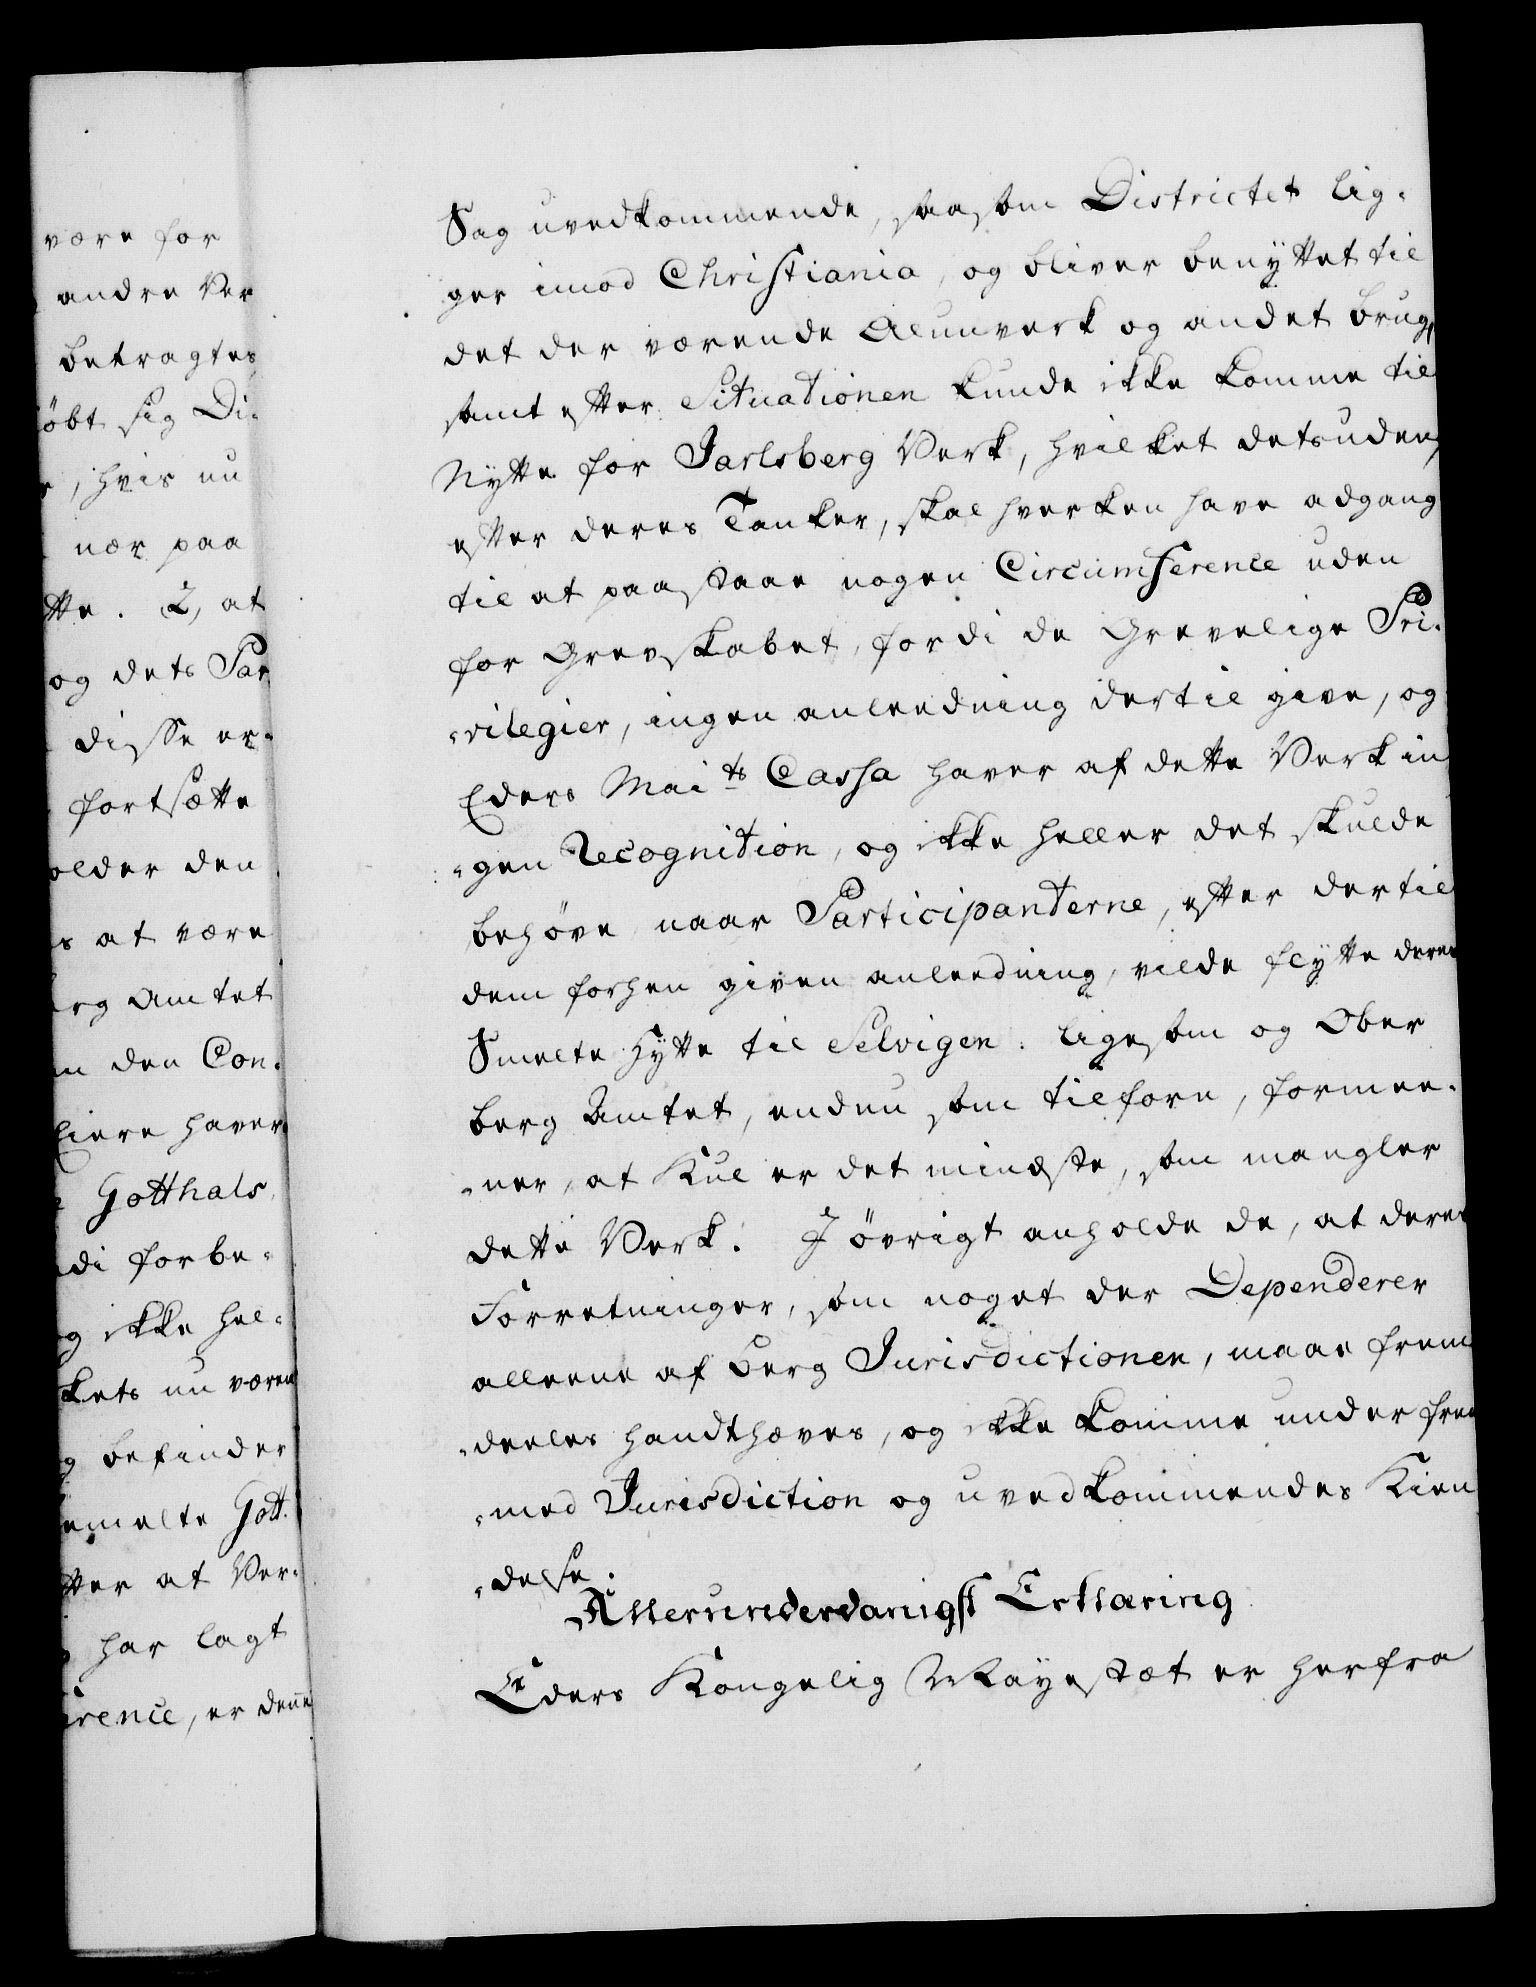 være for
andre Ver
betragtes
öbt sig Di-
, hvis nu
nær paa
tte. 2, at
og dets Par
disse er-
fortsætte
older den
s at være
erg Amtet
m den Con-
Eiere haver
Gotthals
di forbe-
og ikke hel-
kets nu væren
g befinder
emelte Gott-
tter at Ver-
har lagt
erence, er denne
Sag uvedkommende, saasom Districtet lig-
ger imod Christiania, og bliver benyttet til
det der værende Alunverk og andet brug,
samt efter Situationen kunde ikke komme til
Nytte for Jarlsberg Verk, hvilket desuden,
efter deres Tanker, skal hverken have adgang
til at paastaae nogen Circumference uden
for Grevskabet, fordi de Grevelige Pri-
-vilegier, ingen anleedning dertil give, og
Eders Mai.ts Cassa haver af dette Verk in
-gen Recognition, og ikke heller det skulde
behöve naar Participanterne, efter dertil
dem forhen given anleedning, vilde flytte deres
Smelte Hytte til Selvigen. ligesom og Ober
berg Amtet, endnu som tilforn, formee-
-ner, at Kul er det mindste, som mangler
dette Verk. I övrigt anholde de, at deres
Forretninger, som noget der Dependerer
alleene af Berg Jurisdictionen, maae frem
-deeles handthæves, og ikke komme under frem
-med Jurisdiction og uvedkommendes Kien
-delse.
Allerunderdanigst Erklæring
Eders Kongelig Mayestæt er herfra